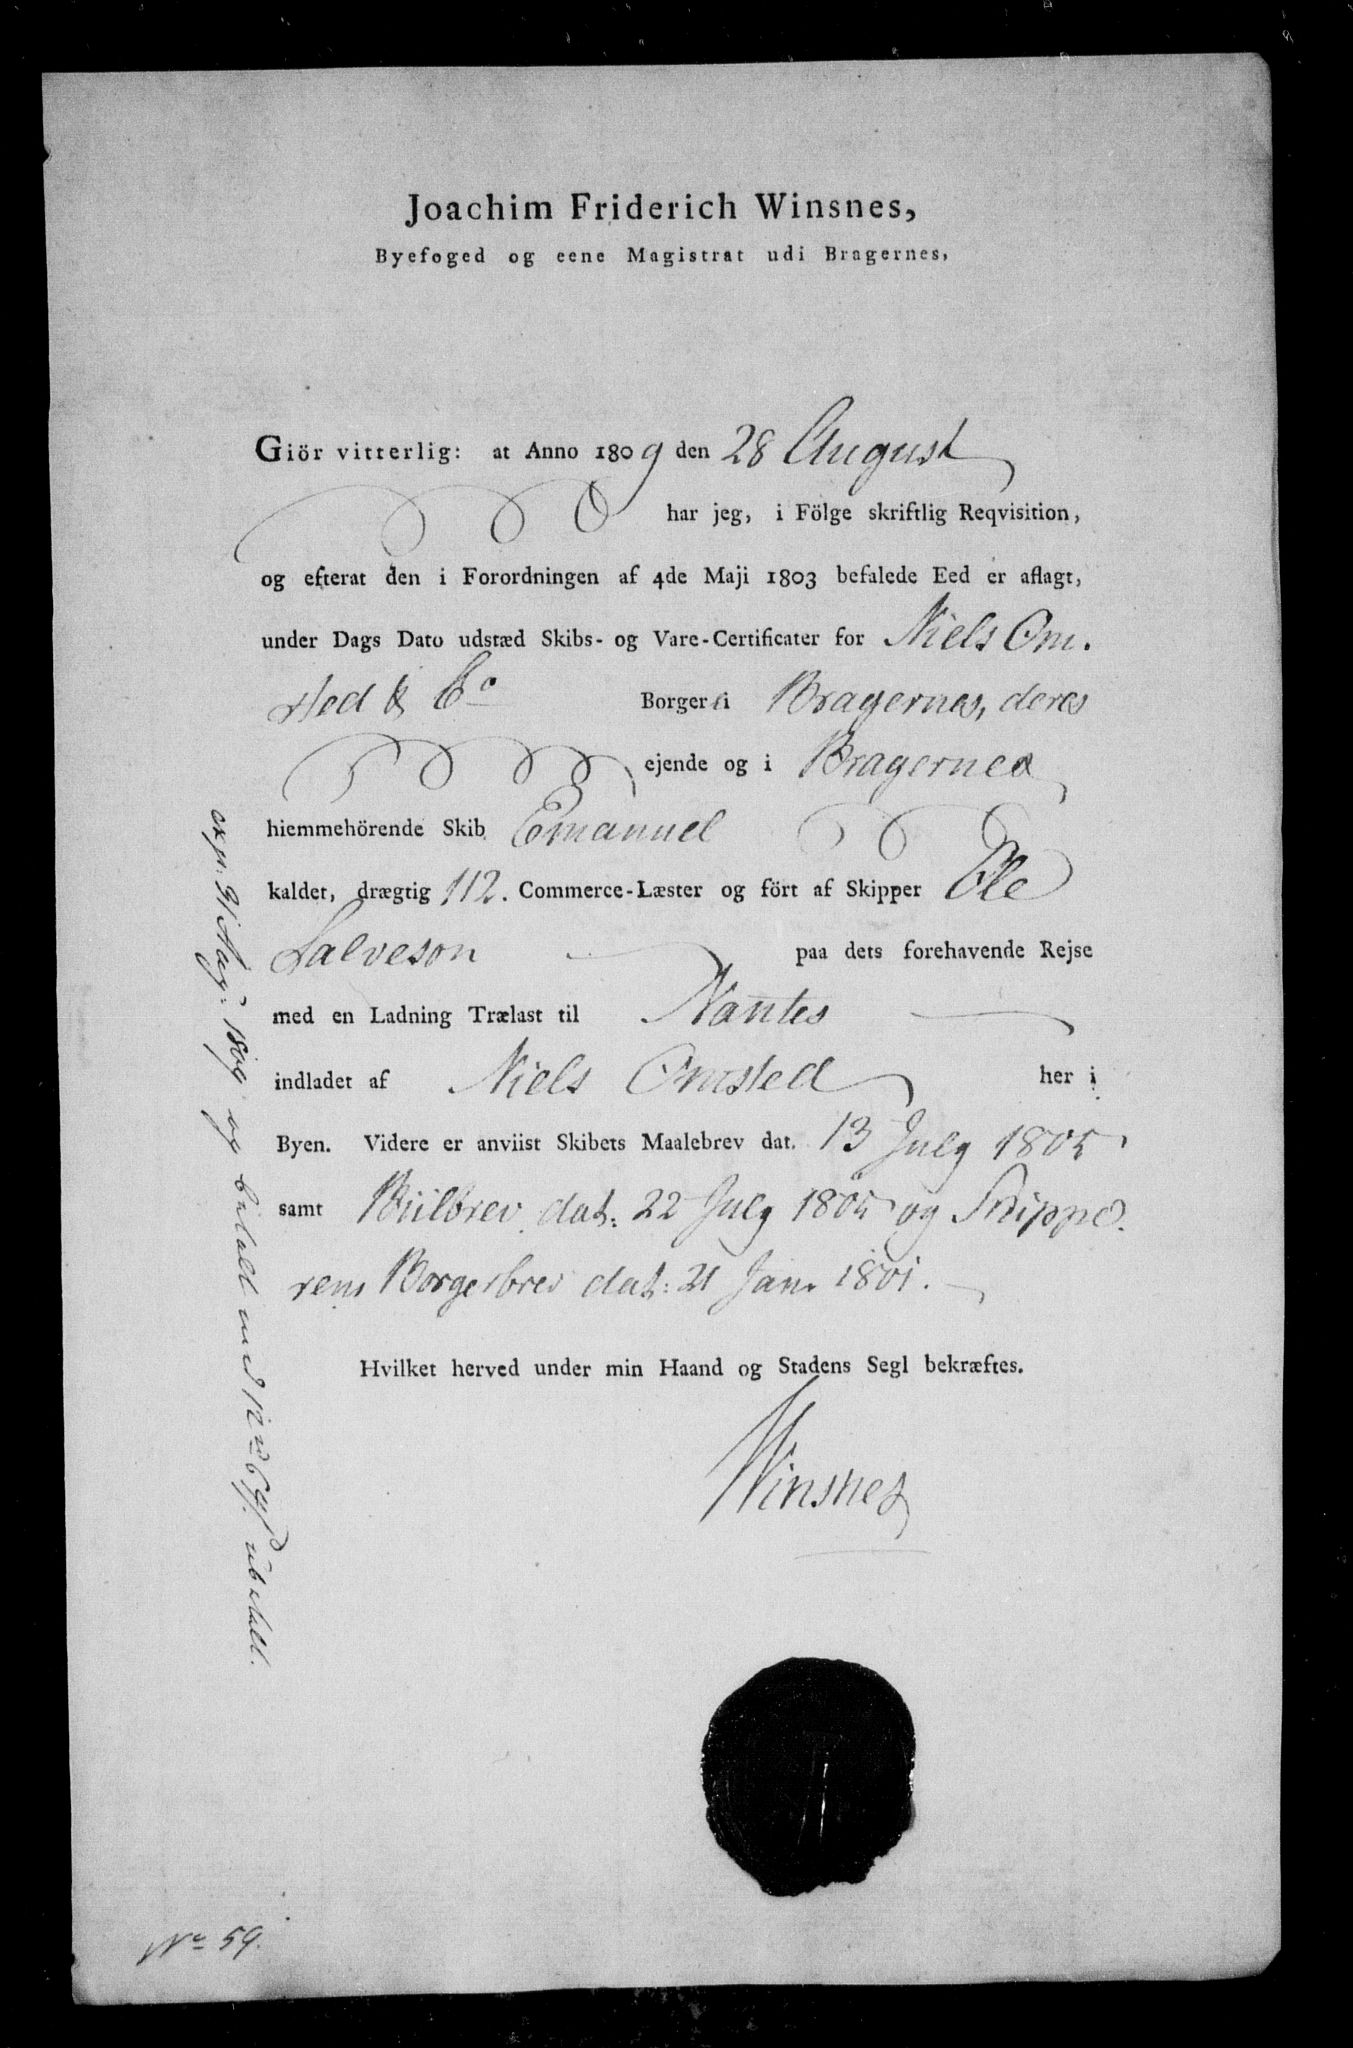 Joachim Friderich Winsnes,
Byefoged og eene Magistrat udi Bragernes,
Giör vitterlig: at Anno 1809 den 28 August
har jeg, i Fölge skriftlig Reqvisition,
og efterat den i Forordningen af 4de Maji 1803 befalede Eed er aflagt,
under Dags Dato udstæd Skibs- og Vare-Certificater for Niels Om.
sted & Co Borger i Bragernes, deres
ejende og i Bragernes
hiemmehörende Skib Emanuel
kaldet, drægtig 112. Commerce-Læster og fört af Skipper Ole
Salveson paa dets forehavende Rejse
med en Ladning Trælast til Nantes
indladet af Niels Omsted her i
Byen. Videre er anviist Skibets Maalebrev dat. 13 July 1805
samt Biilbrev dat: 22 July 1805 og Skippe.
rens Borgerbrev dat: 21 Jan 1801.
Hvilket herved under min Haand og Stadens Segl bekræftes.
Winsnes
exp: 31 Aug: 1809 og betalt med 12
No 59.